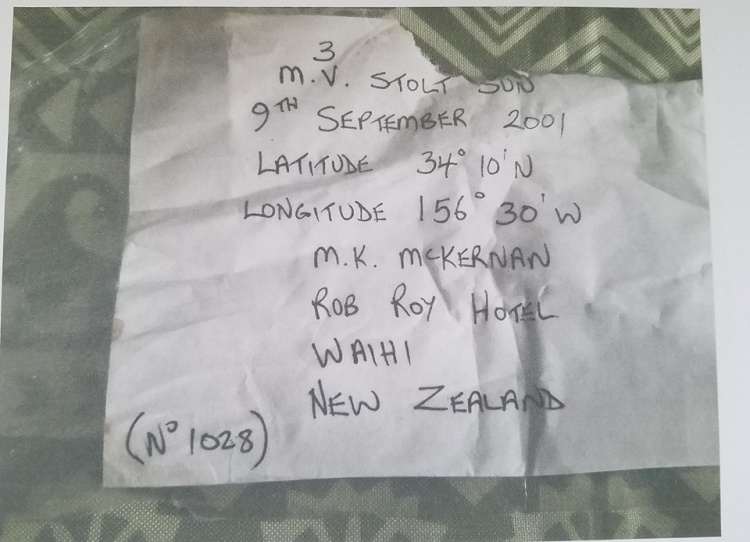 3
M.V. STOLT SUN
9TH SEPTEMBER 2001
LATITUDE 34° 10'N
LONGITUDE 156° 30'W
M.K. McKERNAN
ROB ROY HOTEL
WAIHI
NEW ZEALAND
(Nº 1028)